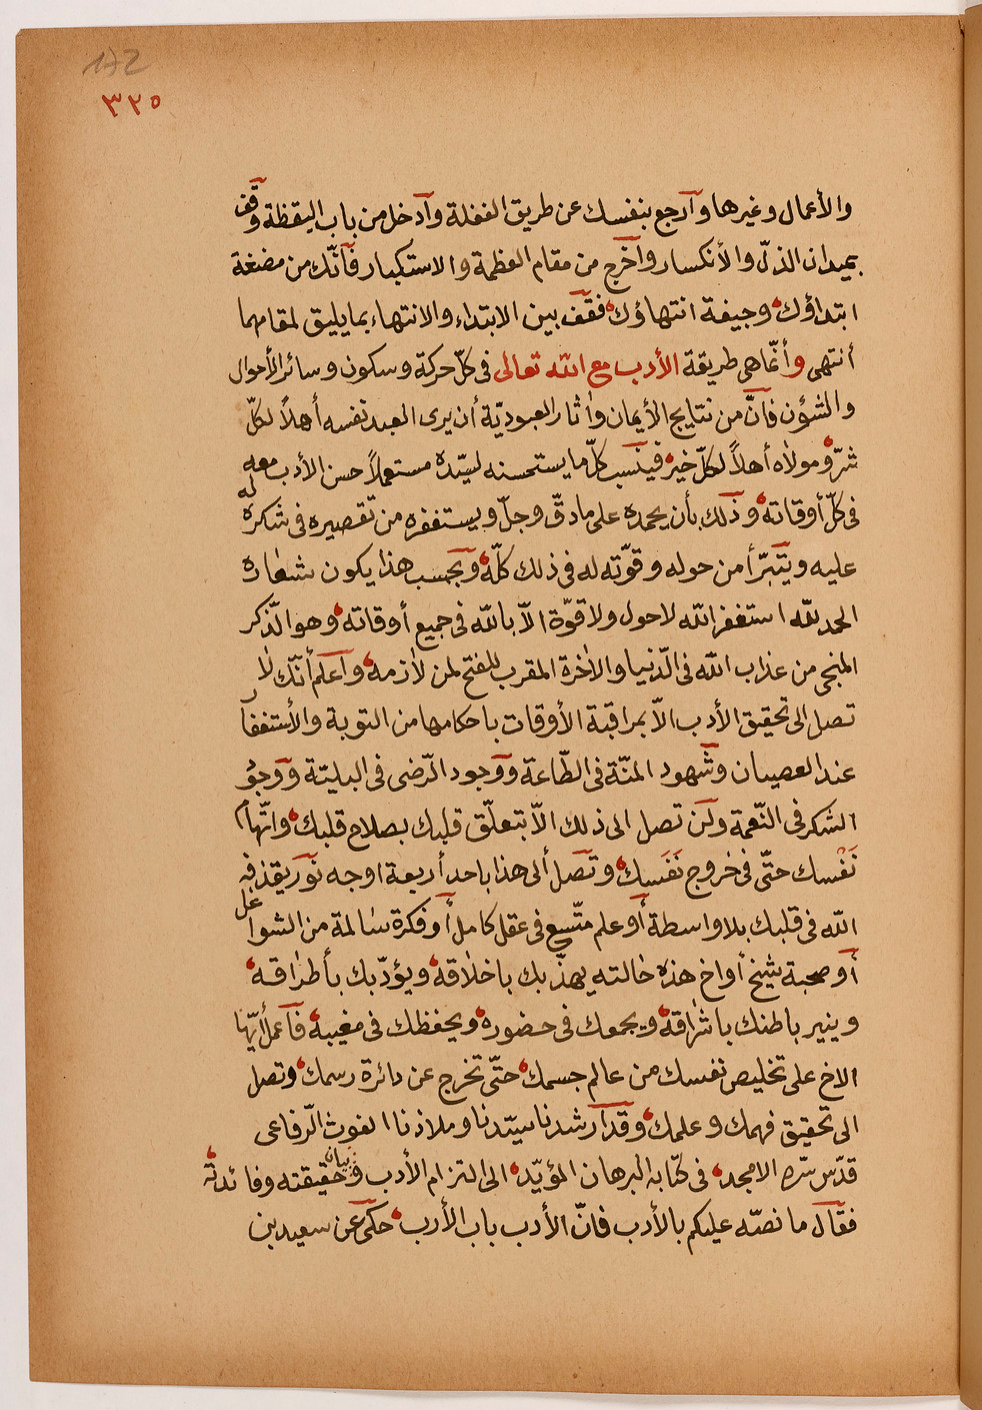 172
٣٢٥
والأعمال وغيرها وآرجع بنفسك عن طريق الغفلة وآدخل من باب اليقظة وقف
بميدان الذلّ والأنكسار وآخرج من مقام العظمة والاستكبار فآنّك من مضغة
ابتداؤك وجيفة انتهاؤك فقف بين الابتداء والانتهاء بما يليق لمقامهما
أنتهى وأنّما هى طريقة الأدب مع الله تعالى فى كلّ حركة وسكون وسائر الأحوال
والشؤن فانّ من نتايج الأيمان وأثار العبوديّة أن يرى العبد نفسه أهلاً لكلّ
شرّ ومولاه أهلاً لكلّ خير فينسب كلّ ما يستحسنه لسيّده مستعملاً حسن الأدب معه
فى كلّ أوقاته وذلك بأن يحمده على مادقّ وجلّ ويستغفره من تقصيره فى شكره له
عليه ويتبرّأ من حوله وقوّته له فى ذلك كلّه وبحسب هذا يكون شعاره
الحمد لله استغفر الله لاحول ولا قوّة الاّ بالله فى جميع أوقاته وهو الذّكر
المنجى من عذاب الله فى الدّنيا والأخرة المقرب للفتح لمن لأزمه وآعلم أنّك لا
تصل الى تحقيق الأدب الاّ بمراقبة الأوقات باحكامها من التوبة والأستغفار
عند العصيان وشهود المنّة فى الطّاعة ووجود الرّضى فى البليّة ووجود
الشكر فى النّعمة ولن تصل الى ذلك الاّ بتعلّق قلبك بصلاح قلبك واتّهام
نفسك حتّى فى خروج نَفَسك وتصل ألى هذا باحد أربعة اوجه نور يقذفه
الله فى قلبك بلا واسطة أو علم متّسع فى عقل كامل أو فكرة سالمة من الشواغل
أو صحبة شيخ أواخ هذه خالته يهذّبك باخلاقه ويؤدّبك بأطراقه
وينير باطنك باشراقه ويجمعك فى حضوره ويحفظك فى مغيبه فآعمل أيّها
الاخ على تخليص نفسك من عالم جسمك حتّى تخرج عن دائرة رسمك وتصل
الى تحقيق فهمك وعلمك وقد آرشدنا سيّدنا وملاذنا الغوث الّرفاعى
قدّس سّره الامجد فى كتابه البرهان المؤيّد الى التزام الأدب وبيان حقيقته وفائدته
فقال ما نصّه عليكم بالأدب فانّ الأدب باب الأرب حكى عن سعيد بن